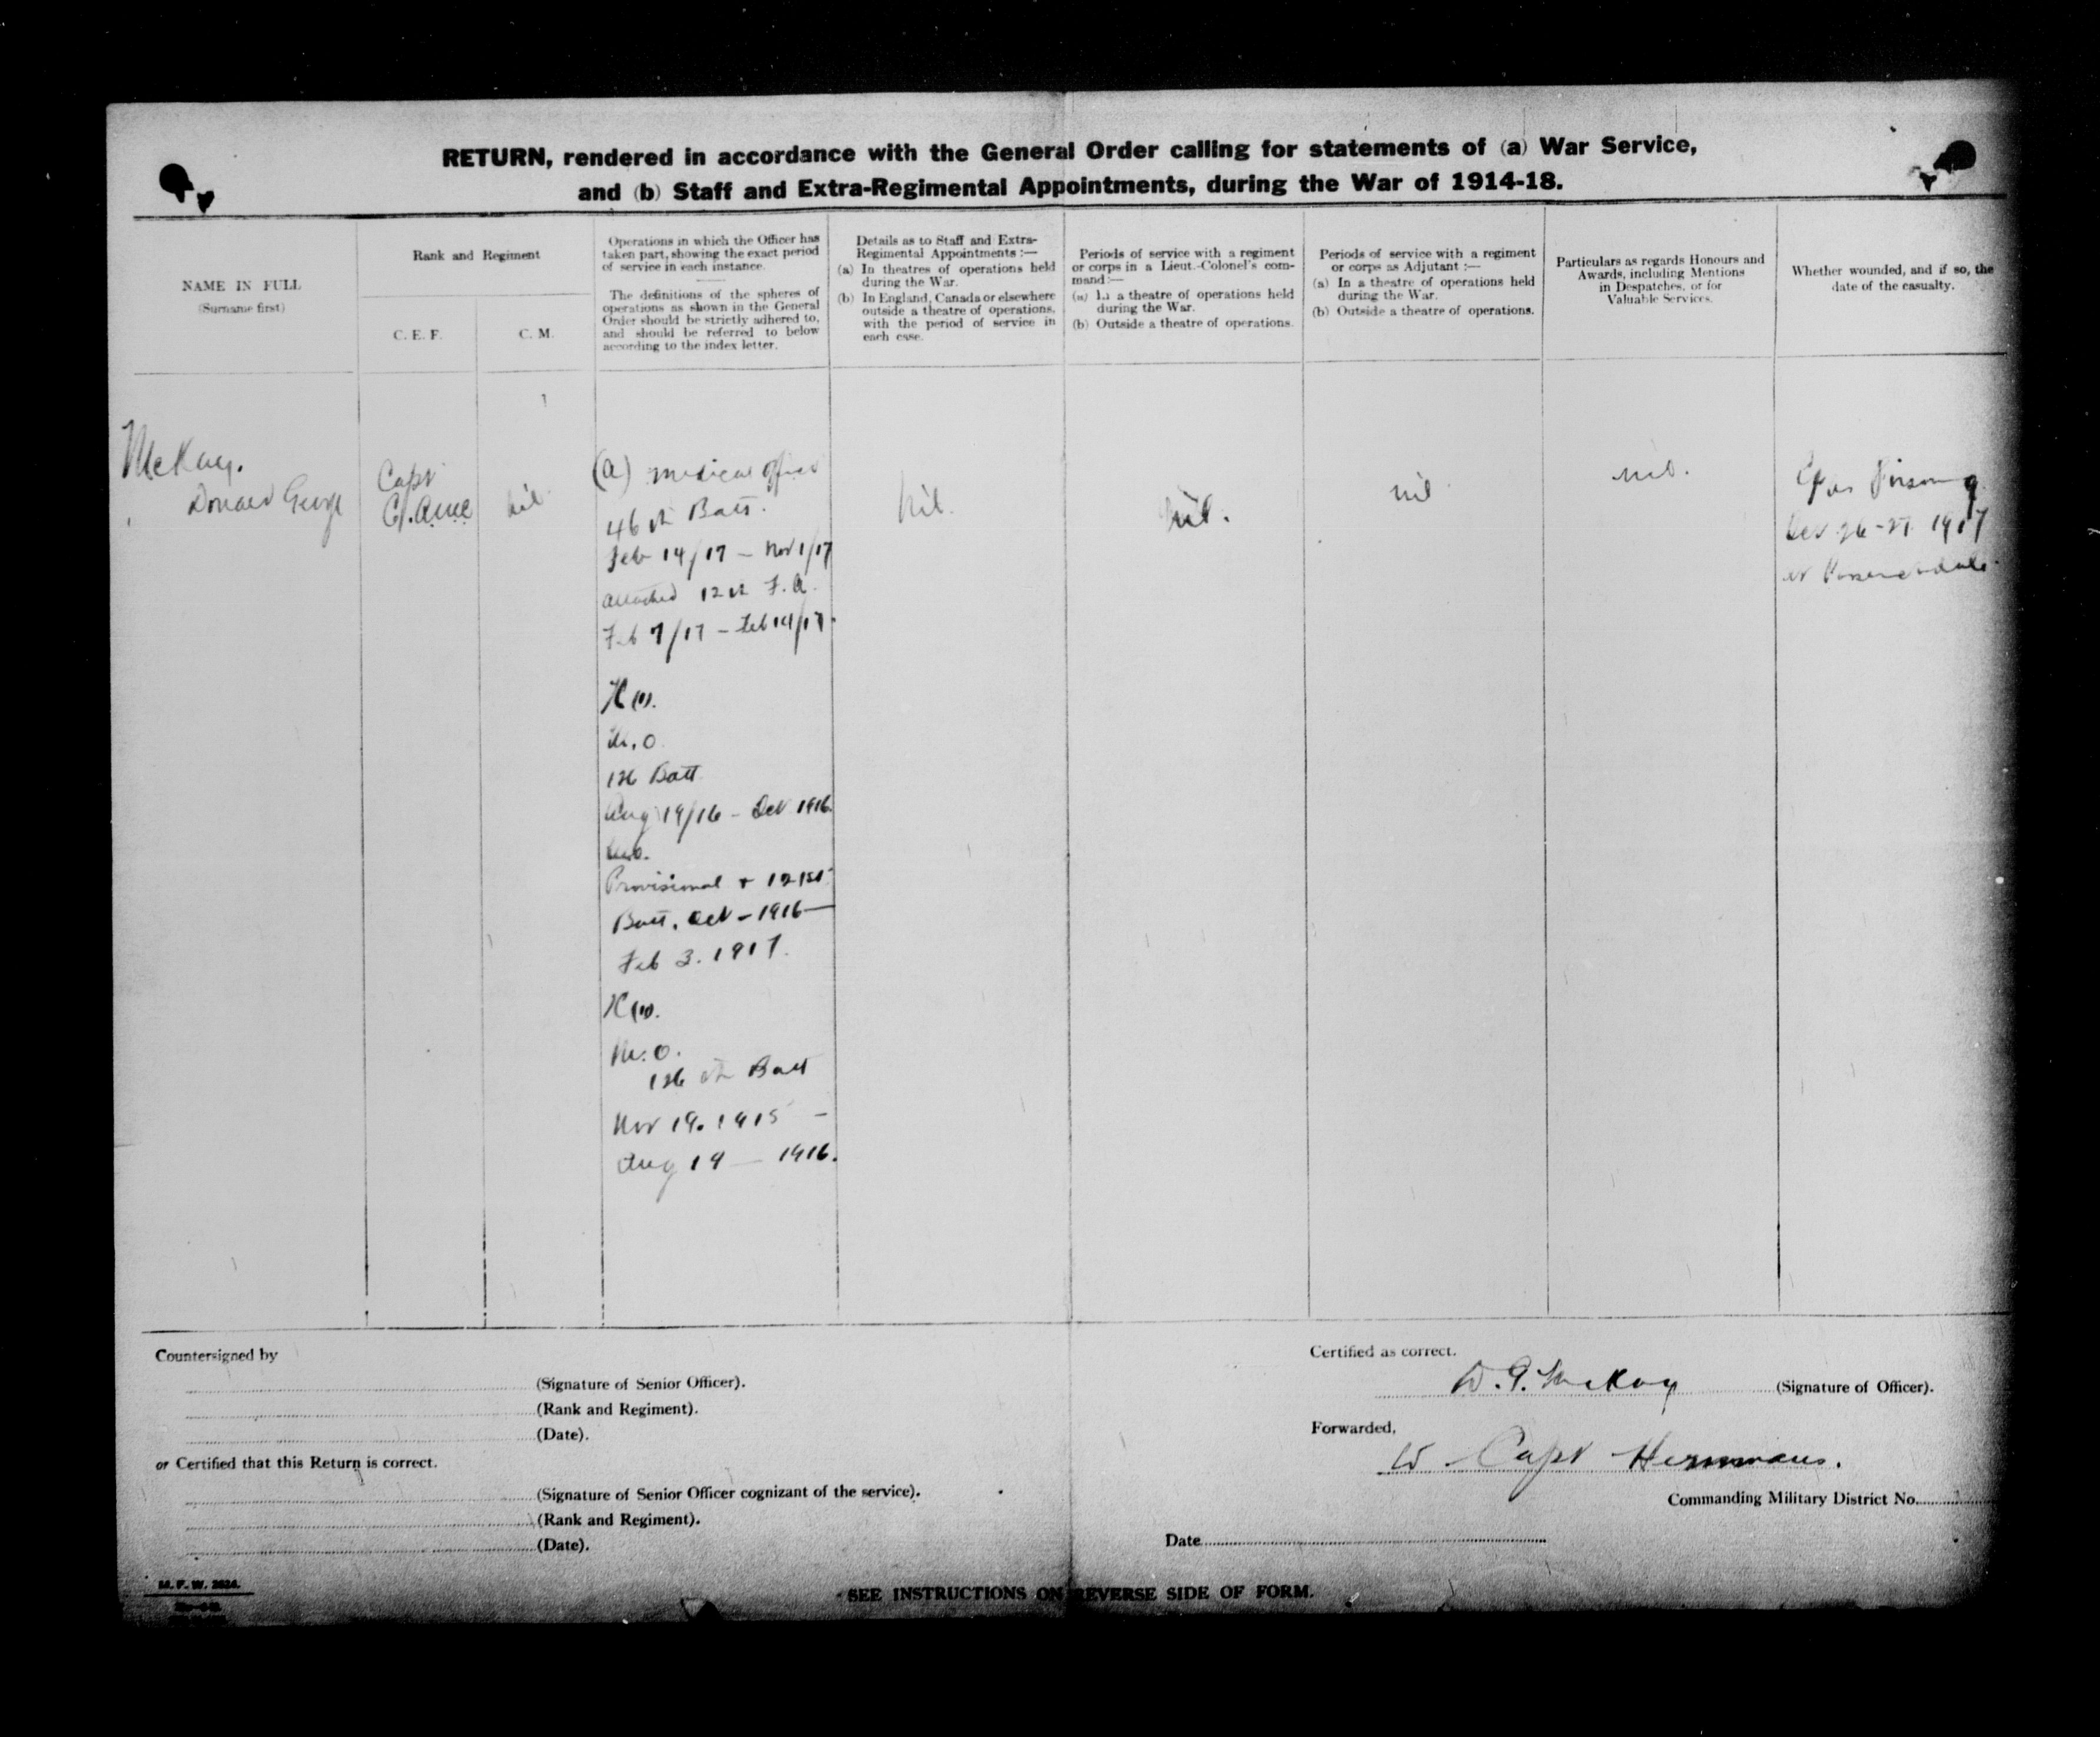 RETURN, rendered in accordance with the General Order calling for statements of (a) War Service,
and (b) Staff and Extra-Regimental Appointments, during the War of 1914-18.
NAME IN FULL
(Surname first)
Rank and Regiment
C. E. F.
C. M.
Operations in which the Officer has
taken part, showing the exact period
of service in each instance.
The definitions of the spheres of
operations as shown in the General
Order should be strictly adhered to,
and should be referred to below
according to the index letter.
Details as to Staff and Extra-
Regimental Appointments :—
(a) In theatres of operations held
during the War.
(b) In England, Canada or elsewhere
outside a theatre of operations,
with the period of service in
each case.
Periods of service with a regiment
or corps in a Lieut.-Colonel's com-
mand :—
(a) In a theatre of operations held
during the War.
(b) Outside a theatre of operations.
Periods of service with a regiment
or corps as Adjutant :—
(a) In a theatre of operations held
during the War.
(b) Outside a theatre of operations.
Particulars as regards Honours and
Awards, including Mentions
in Despatches, or for
Valuable Services.
Whether wounded, and if so, the
date of the casualty.
McKay.
Donald George
Capt
C.A.M.C
nil
(a) medical officer
46th Batt.
Feb 14/17 – Nov 1/17
attached 12th F.A.
Feb 7/17 – Feb 14/17.
M.O.
126 Batt
Aug 19/16 – Oct 1916.
Provisional + 121st
Batt. Oct – 1916 –
Feb 3. 1917.
M.O.
126th Batt
Nov 19. 1915 –
Aug 19 – 1916.
Nil.
Nil.
nil
nil.
Gas Poisoning
Oct 26-27 1917
at Passchendale
Countersigned by
(Signature of Senior Officer).
(Rank and Regiment).
(Date).
or Certified that this Return is correct.
(Signature of Senior Officer cognizant of the service).
(Rank and Regiment).
(Date).
Certified as correct.
D. G. McKay (Signature of Officer).
Forwarded,
Capt
Commanding Military District No.
Date
M. F. W. 2624.
SEE INSTRUCTIONS ON REVERSE SIDE OF FORM.